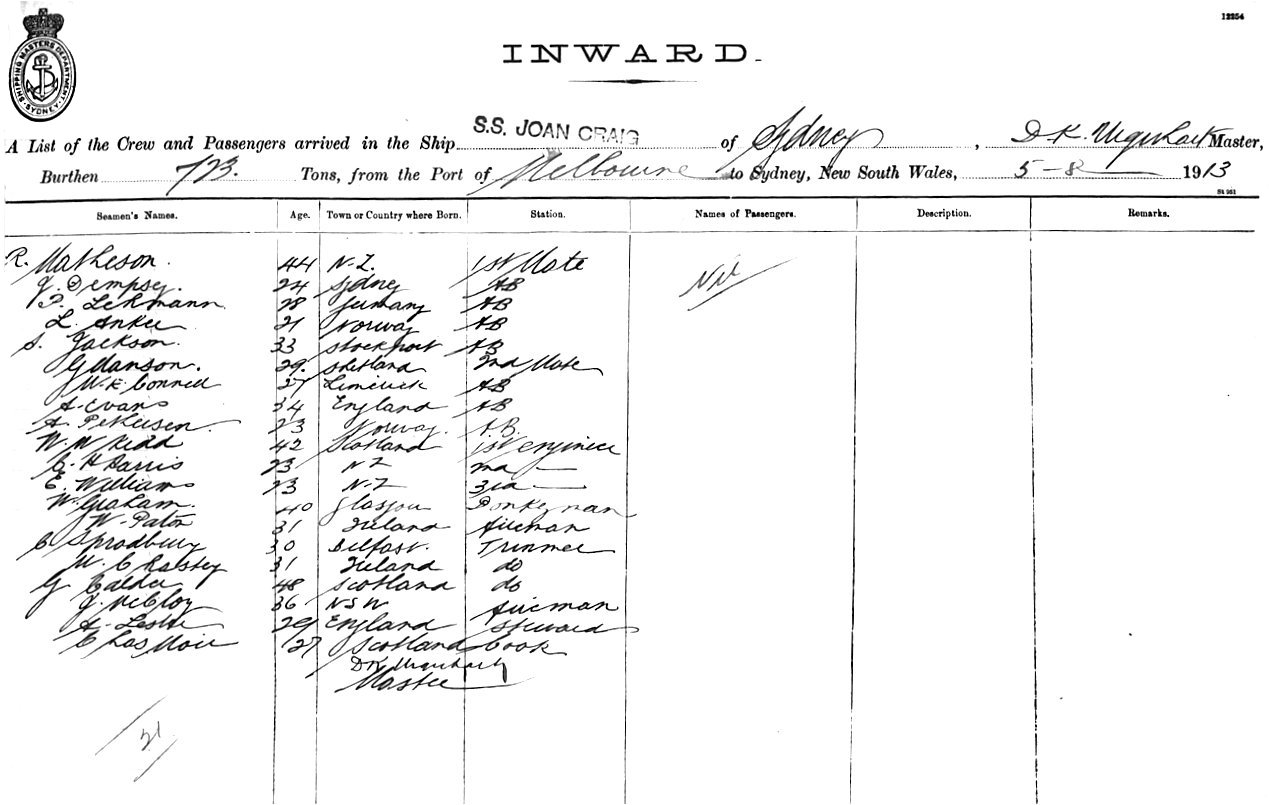 12254
SHIPPING MASTERS DEPARTMENT SYDNEY
INWARD.
A List of the Crew and Passengers arrived in the Ship S.S. JOAN CRAIG of Sydney, D K. Urquhart Master,
Burthen 723. Tons, from the Port of Melbourne to Sydney, New South Wales, 5-8 1913
Seamen's Names. Age. Town or Country where Born. Station. Names of Passengers. Description. Remarks.
R. Matheson. 44 N-Z. 1st Mate Nil
J. Dempsey. 24 Sydney AB
P. Lehmann 28 Germany AB
L. Anker 21 Norway AB
S. Jackson. 33 Stockport AB
G Manson. 29. Shetland 2nd Mate
W. K. Connell 27 Limerick AB
A. Evans 34 England AB
A. Petersen 23 Norway. A.B.
W. W Kidd 42 Scotland 1st Engineer
C. H Harris 23 N Z 2nd —
E. Williams 23 N-Z 3rd —
W. Graham. 40 Glasgow Donkeyman
W. Paton 31 Ireland Fireman
C Spradbury 30 Belfast. Trimmer
W. C 31 Ireland do
G Calder 48 Scotland do
J. McCloy 36 NSW Fireman
A. Leslie 29 England Steward
Chas Moir 27 Scotland Cook
D K Urquhart
Master
21